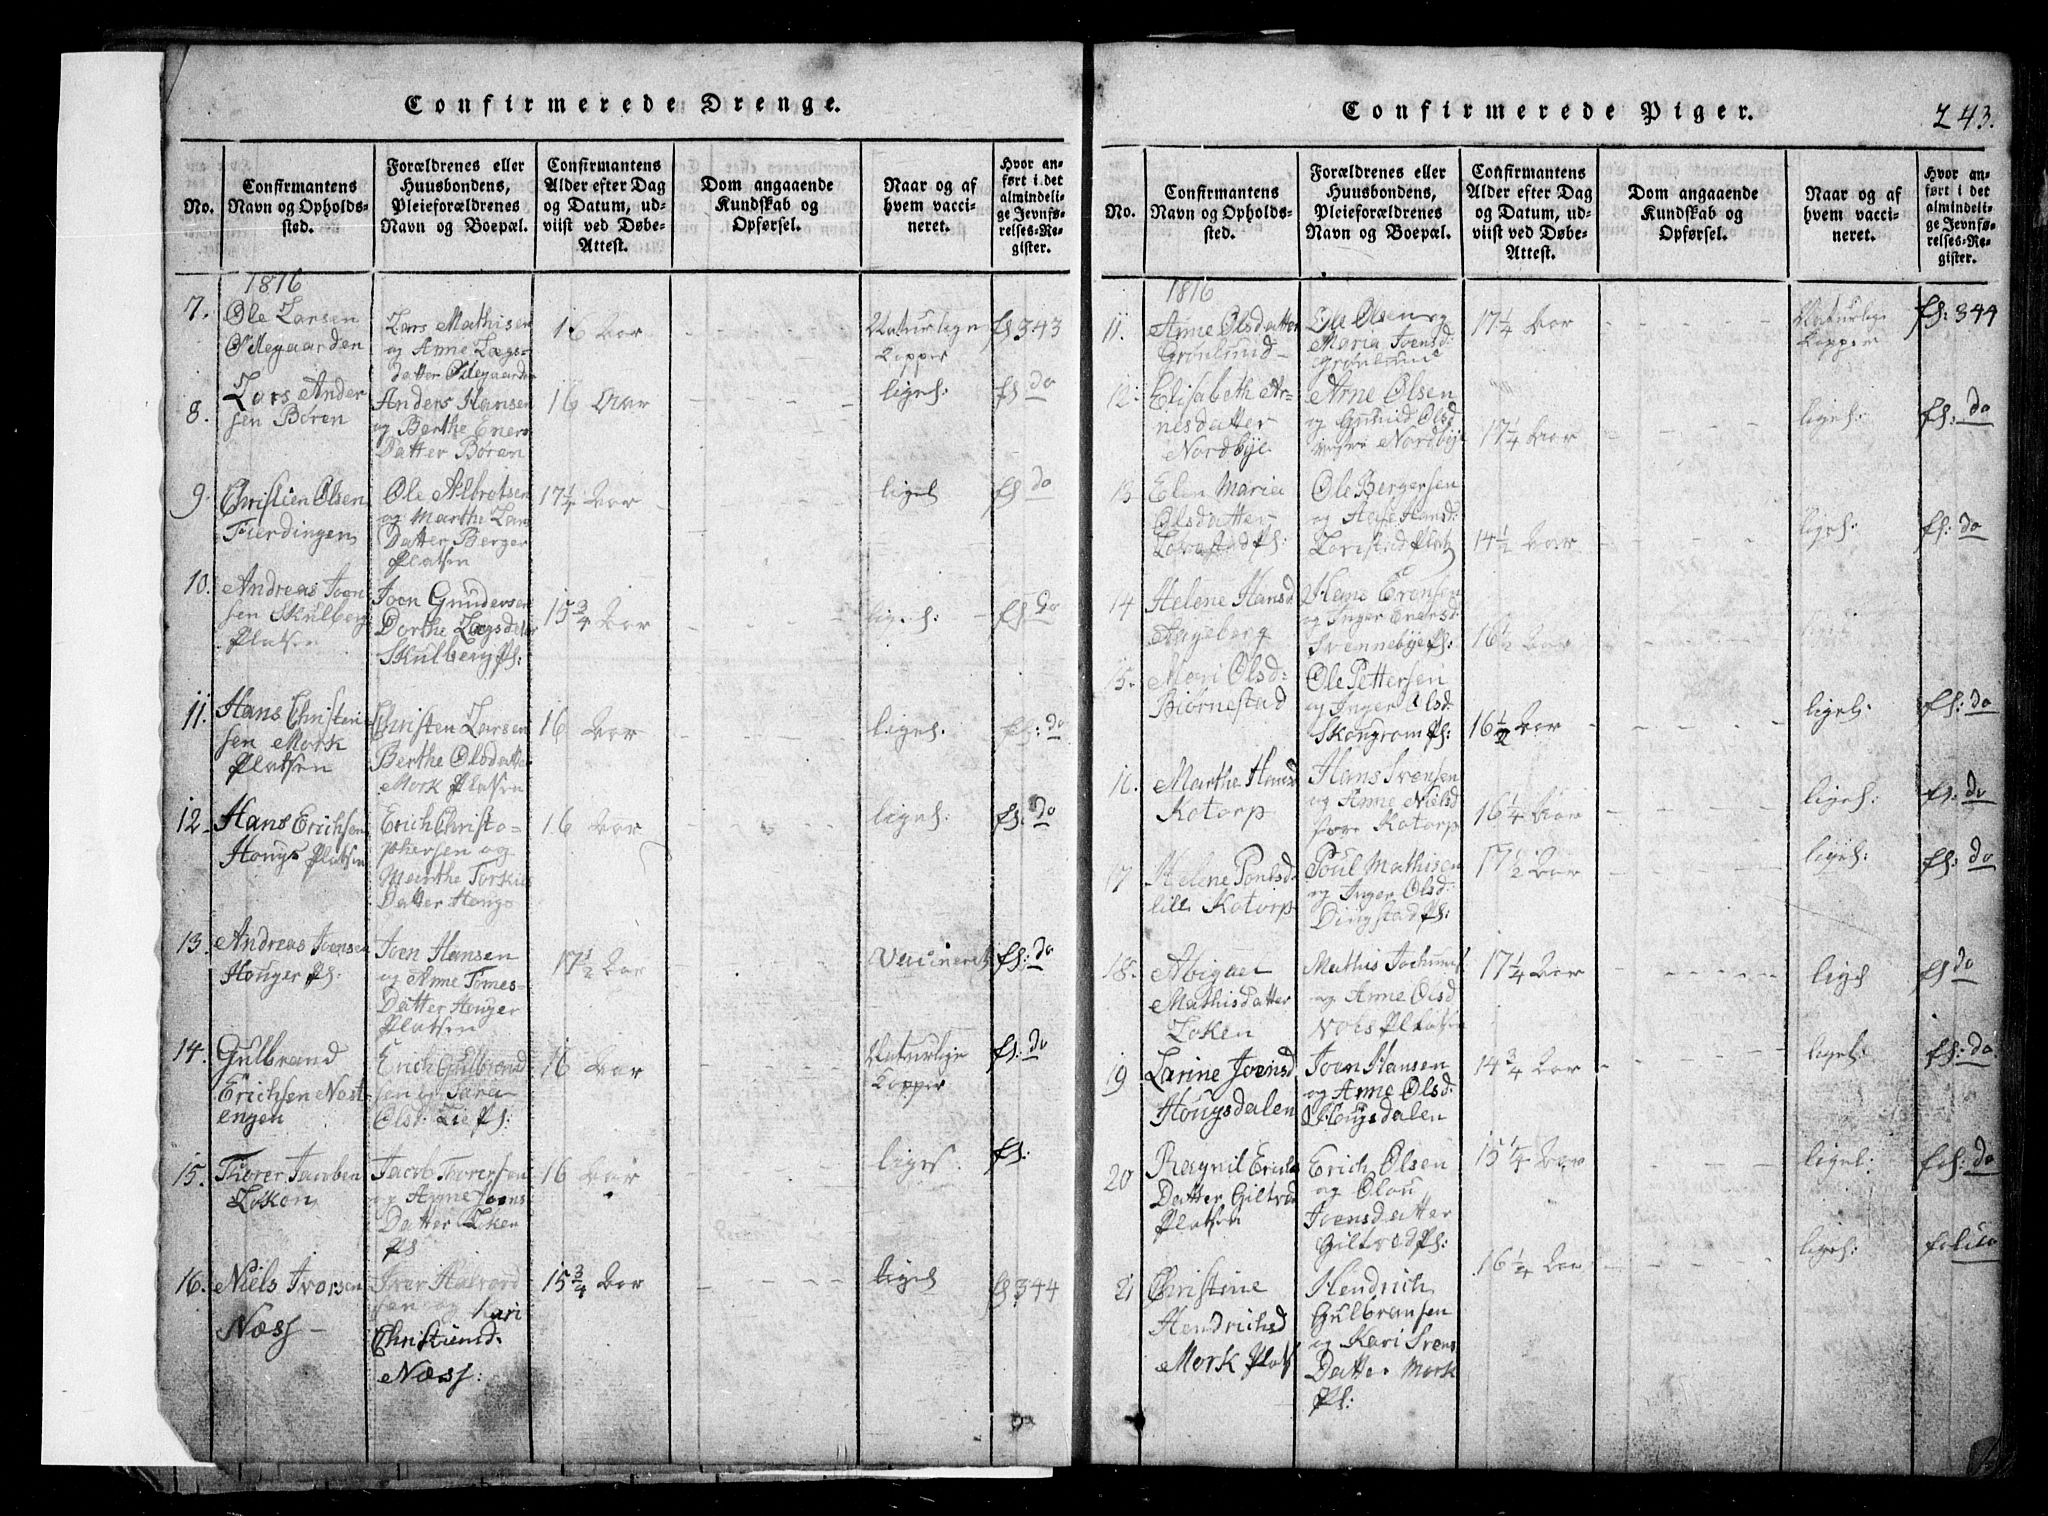 Confirmerede Drenge.
No.
Confirmantens
Navn og Opholds-
sted.
Forældrenes eller
Huusbondens,
Pleieforældrenes
Navn og Boepæl.
Confirmantens
Alder efter Dag
og Datum, ud-
viist ved Døbe-
Attest.
Dom angaaende
Kundskab og
Opførsel.
Naar og af
hvem vacci-
neret.
Hvor an-
ført i det
almindeli-
ge Jevnfø-
relses-Re-
gister.
1816
7.
Ole Larsen
Ødegaarden
Lars Mathisen
og Anne Lægs-
datter Ødegaarden
16 Aar
Naturlige
Kopper
fl 343
8.
Lars Ander
sen Børen
Anders Hansen
og Berthe Ener
Datter Børen
16 Aar
ligel:
fl do
9.
Christien Olsen
Fierdingen
Ole Albretsen
og Marthe Lars
Datter Berger
Platsen
17¼ Aar
ligel
fl do
10.
Andreas Joen
sen Skulberg
Platsen
Joen Gundersen
Dorthe Lægsdater
Skulberg Pl:
15¾ Aar
ligel:
fl do
11.
Hans Christen
sen Mork
Platsen
Christen Larsen
Berthe Olsdatte
Mork Platsen
16 Aar
ligel.
fl: do
12
Hans Erichsen
Hougs Platsen
Erich Christo-
phersen og
Marthe Torkils
Datter Hougs
16 Aar
ligel:
fl. do
13.
Andreas Joensen
Houger Pl:
Joen Hansen
og Anne Tomes-
Datter Houger
Platsen
17½ Aar
Vacineret
fl: do
14.
Gulbrand
Erichsen Nost
engen
Erich Gulbrand
sen og Sara
Olsd. Lie Pl:
16 Aar
Naturlige
Kopper
fl: do
15.
Thorer Jacobsen
Løken
Jacob Thorersen
og Anne Joens
Datter Løken
Pl
16 Aar
ligel.
fl:
16.
Niels Ivorsen
Næss
Iver Halvord
sen og Kari
Christiensd.
Næss:
15¾ Aar
ligel
fl 344
Confirmerede Piger.
243.
No.
Confirmantens
Navn og Opholds-
sted.
Forældrenes eller
Huusbondens,
Pleieforældrenes
Navn og Boepæl.
Confirmantens
Alder efter Dag
og Datum, ud-
viist ved Døbe-
Attest.
Dom angaaende
Kundskab og
Opførsel.
Naar og af
hvem vacci-
neret.
Hvor an-
ført i det
almindeli-
ge Jevnfø-
relses-Re-
gister.
1816
11.
Anne Olsdatter
Grønlund
Ole Olsen og
Maria Joensd:
Grønlund
17¼ Aar
Naturlige
Kopper
fl: 344
12.
Elisabeth Ar-
nesdatter
Nordbye
Arne Olsen
og Gunild Olsd
Nordbye
17¼ Aar
ligel:
fl: do
13
Elen Maria
Olsdatter
Pl:
Ole Bergersen
og Aase Hansd:
Plats
14½ Aar
ligel:
fl: do
14
Helene Hansd
Ageberg
Hans Erensen
og Inger Enersd
Svennebye Pl:
16½ Aar
15.
Mari Olsd:
Biørnestad
Ole Pettersen
og Inger Olsd
Skongrom Pl:
16½ Aar
ligel:
fl: do
16.
Marthe Hansd
Kotorp
Hans Svensen
og Anne Nielsd
Kotorp
16¼ Aar
ligel:
fl: do
17
Helene Poulsd:
lille Kotorp
Poul Mathisen
og Inger Olsd:
Dingstad Pl:
17½ Aar
ligel:
fl: do
18.
Abigael
Mathisdatter
Løken
Mathis Jochums
og Anne Olsd
Nobs Platsen
17¼ Aar
ligel
fl do
19
Larine Joensd
Hougsdalen
Joen Hansen
og Anne Olsd:
Hougsdalen
14¾ Aar
ligel:
fl: do
20
Ragnil Erichs
Datter Giltved
Platsen
Erich Olsen
og Olou
Joensdatter
Giltved Pl:
15¼ Aar
ligel:
fol: do
21
Christine
Hendrichsd
Mork Plats
Hendrich
Gulbransen
og Kari Svens
Datter Mork
Pl:
16¼ Aar
ligel: